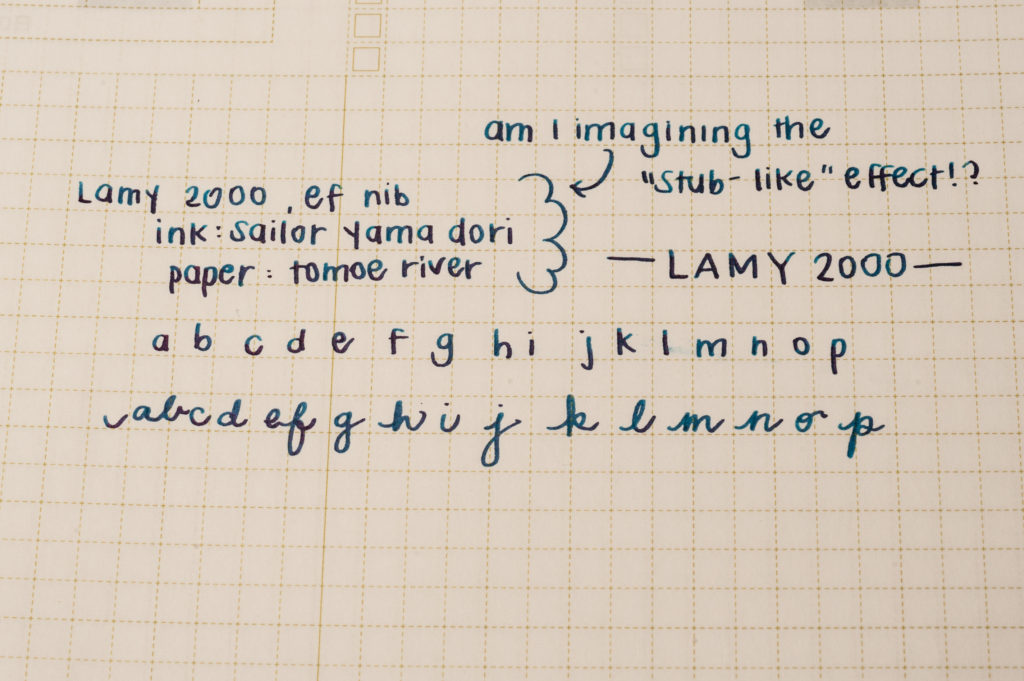 am I imagining the
"stub-like" effect!?
Lamy 2000, ef nib
ink: sailor yama dori
paper: tomoe river
— LAMY 2000 —
a b c d e f g h i j k l m n o p
a b c d e f g h i j k l m n o p